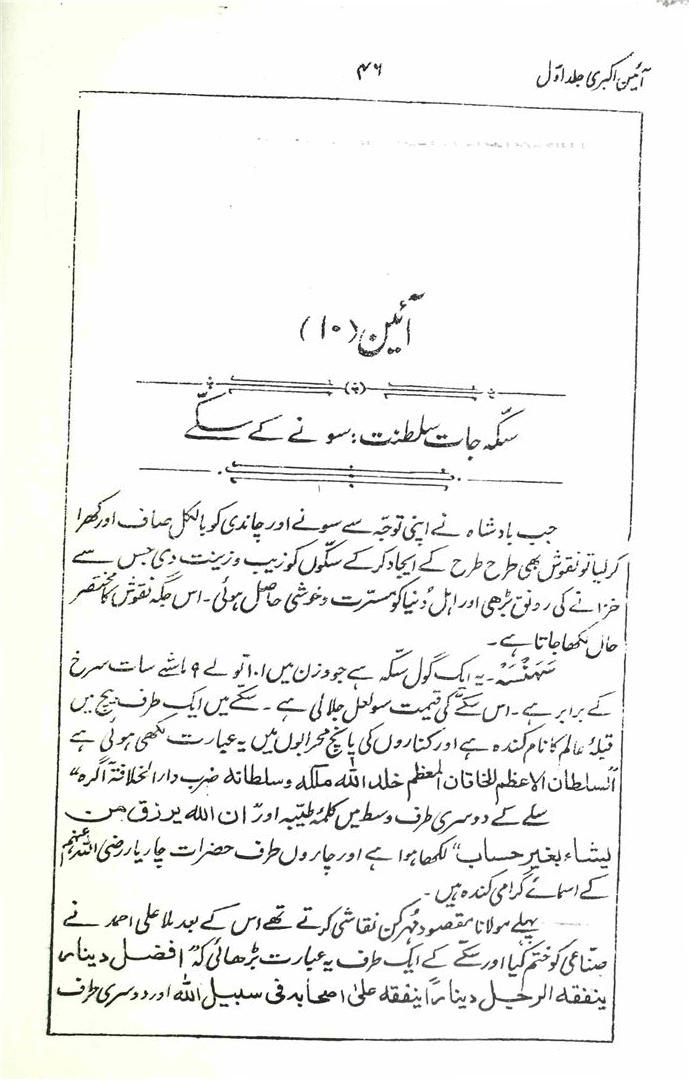 آئین اکبری جلد اوّل
۴۶
آئین (۱۰)
سکّہ جات سلطنت: سونے کے سکّے
جب بادشاہ نے اپنی توجّہ سے سونے اور چاندی کو بالکل صاف اور کھرا
کر لیا تو نقوش بھی طرح طرح کے ایجاد کر کے سکّوں کو زیب و زینت دی جس سے
خزانے کی رونق بڑھی اور اہل دُنیا کو مسترت و خوشی حاصل ہوئی۔ اس جگہ نقوش کا مختصر
حال لکھا جاتا ہے۔
سہنسہ۔ یہ ایک گول سکّہ ہے جو وزن میں ۱۰۱ تولے ۹ ماشے سات سرخ
کے برابر ہے۔ اس سکّے کی قیمت سو لعل جلالی ہے۔ سکّے میں ایک طرف بیچ میں
قبلۂ عالم کا نام کندہ ہے اور کناروں کی پانچ محرابوں میں یہ عبارت لکھی ہوئی ہے
السلطان الاعظم الخاقان المعظم خلد اللہ ملکہ و سلطانہ ضرب دار الخلافۃ آگرہ“
سلے کے دوسری طرف وسط میں کلمۂ طیّبہ اور ”ان اللہ یرزق من
یشاء بغیر حساب“ لکھا ہوا ہے اور چاروں طرف حضرات چار یار رضی اللہ عنہم
کے اسمائے گرامی کندہ ہیں۔
پہلے مولانا مقصود مُہر کن نقاشی کرتے تھے اس کے بعد ملا علی احمد نے
صنّاعی کو ختم کیا اور سکّے کے ایک طرف یہ عبارت بڑھائی کہ ”افضل دینار
ینفقہ الرجل دینارًا ینفقہ علیٰ اصحابہ فی سبیل اللہ اور دوسری طرف